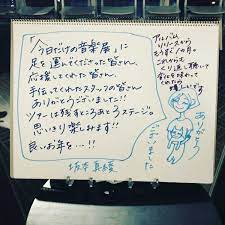 「今日だけの音楽展」に
足を運んでくださった皆さん、
応援してくれた皆さん、
手伝してくれたスタッフの皆さん
ありがとうございました!!
ツアーは残すところあと3ステージ。
思いきり楽しみます!!
良いお年を…!!
坂本真綾
アルバム
リリースから
もうすぐ1ヶ月。
これからも
くり返し聴いて
味わってくれたら
嬉しいです
ありがとう
ございました